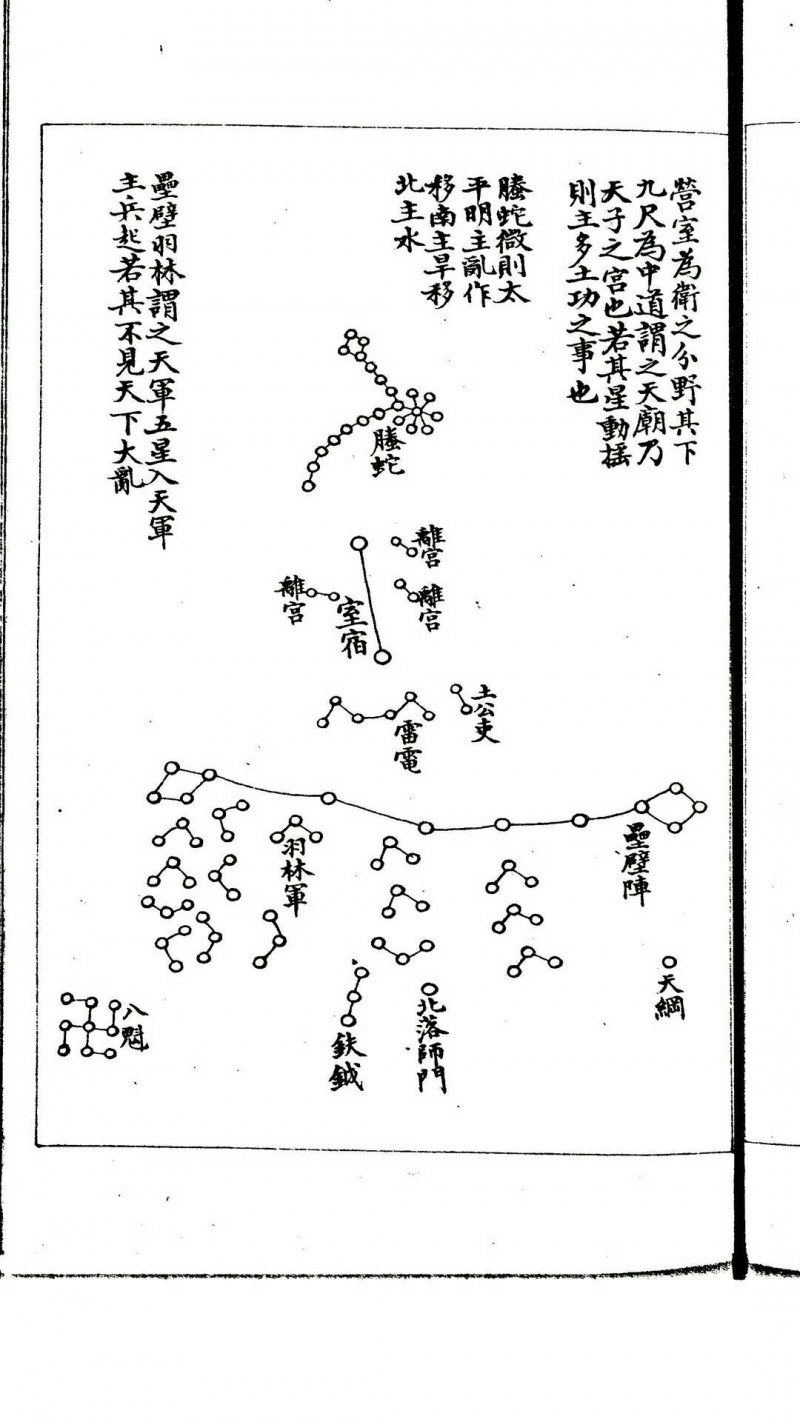 營室為衛之分野其下
九尺為中道謂之天廟乃
天子之宮也若其星動搖
則主多土功之事也
螣蛇微則太
平明主亂作
移南主旱移
北主水
壘壁羽林謂之天軍五星入天軍
主兵起若其不見天下大亂
螣蛇
離宮
離宮
離宮
室宿
土公吏
雷電
壘壁陣
羽林軍
天綱
北落師門
鈇鉞
八魁